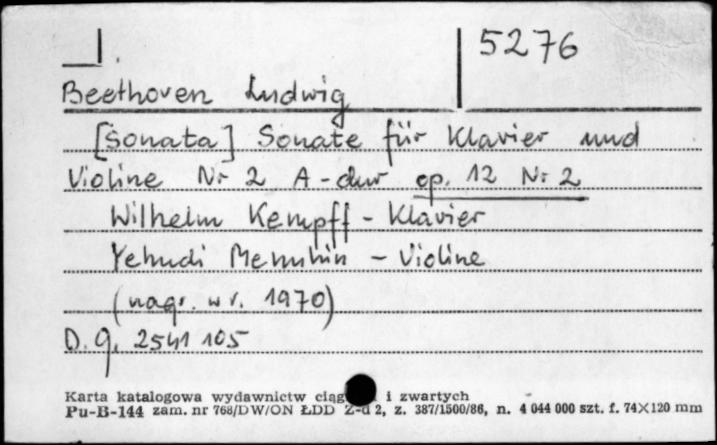 5276
Beethoven Ludwig
[Sonata] Sonate für Klavier und
Violine Nr 2 A-dur op. 12 Nr 2
Wilhelm Kempff - Klavier
Yehudi Menuhin - Violine
(nagr. w r. 1970)
D. g. 2541 105
Karta katalogowa wydawnictw ciąg i zwartych
Pu-B-144 zam. nr 768/DW/ON ŁDD Z-d 2, z. 387/1500/86, n. 4 044 000 szt. f. 74X120 mm